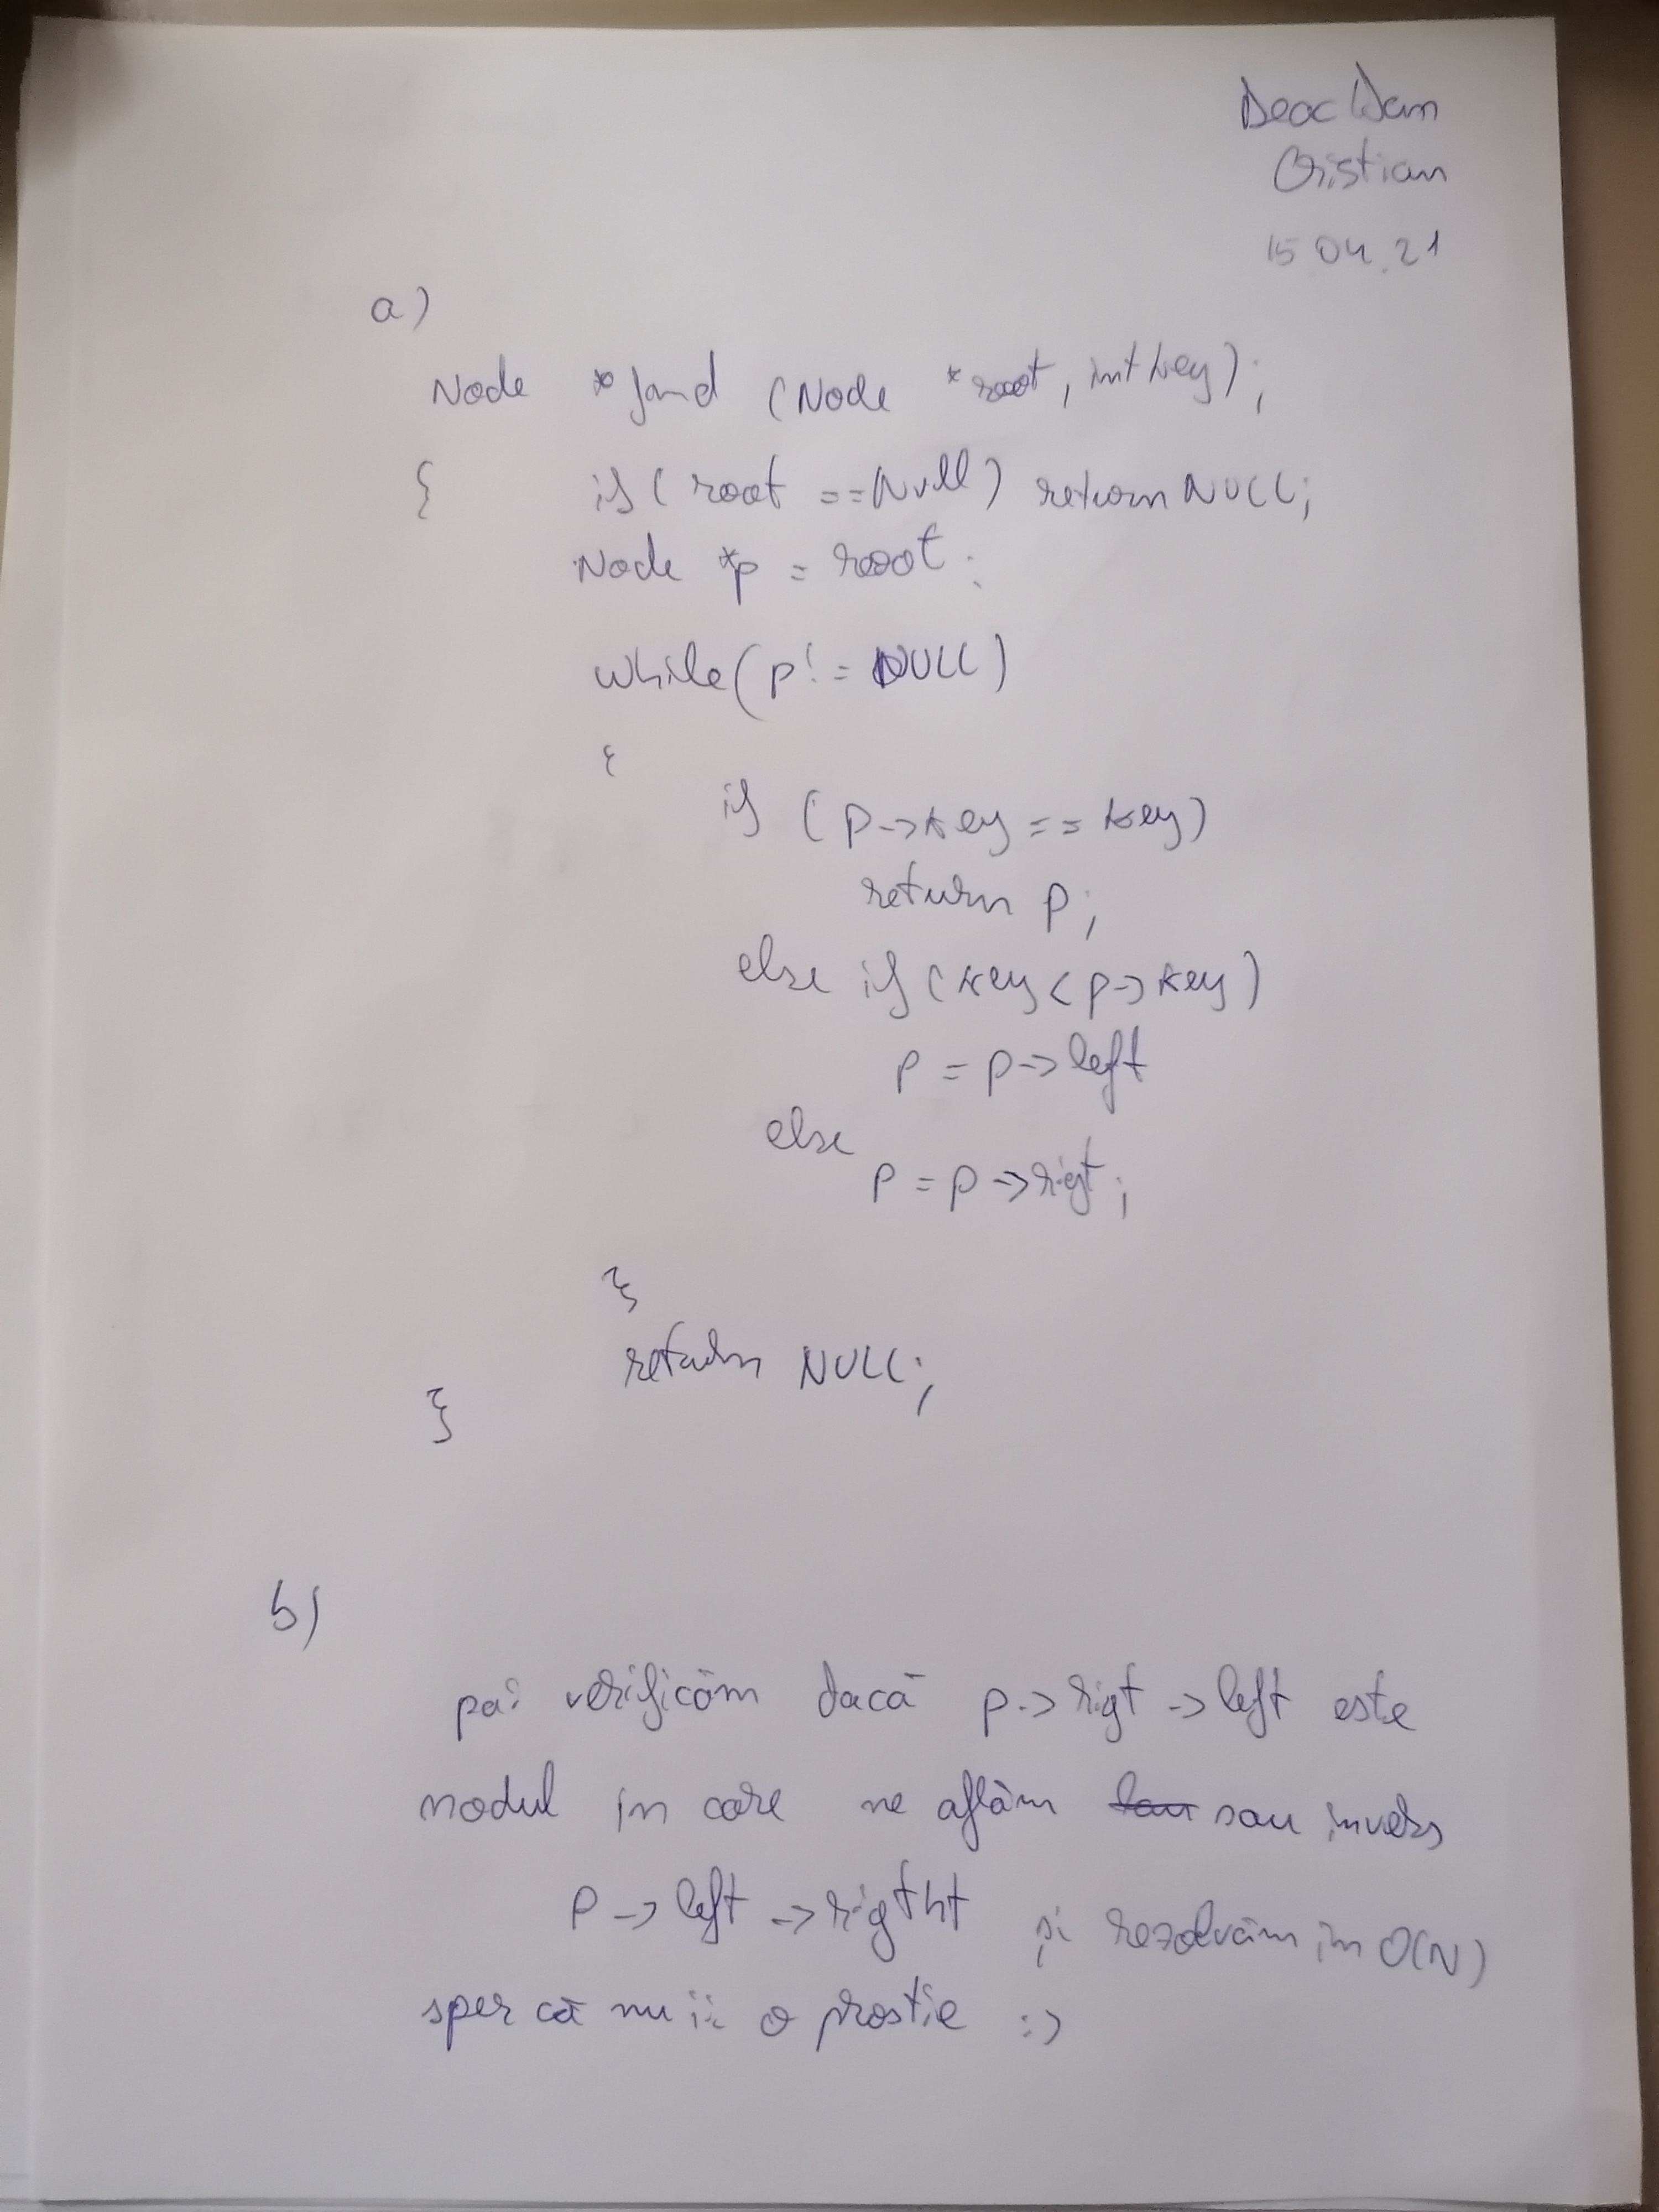 Deac Dan
Cristian
15 04.21
a)
Node *find (Node *root, int key);
{ if (root == Null) return NULL;
Node *p = root;
while (p != NULL)
{
if (p->key == key)
return p;
else if (key < p->key)
p = p->left
else
p = p->rigt;
}
return NULL;
}
b)
pai verificăm dacă p->rigt->left este
nodul in care ne aflăm sau invers
p->left->rigtht și rezolvăm in O(N)
sper că nu ii o prostie :)